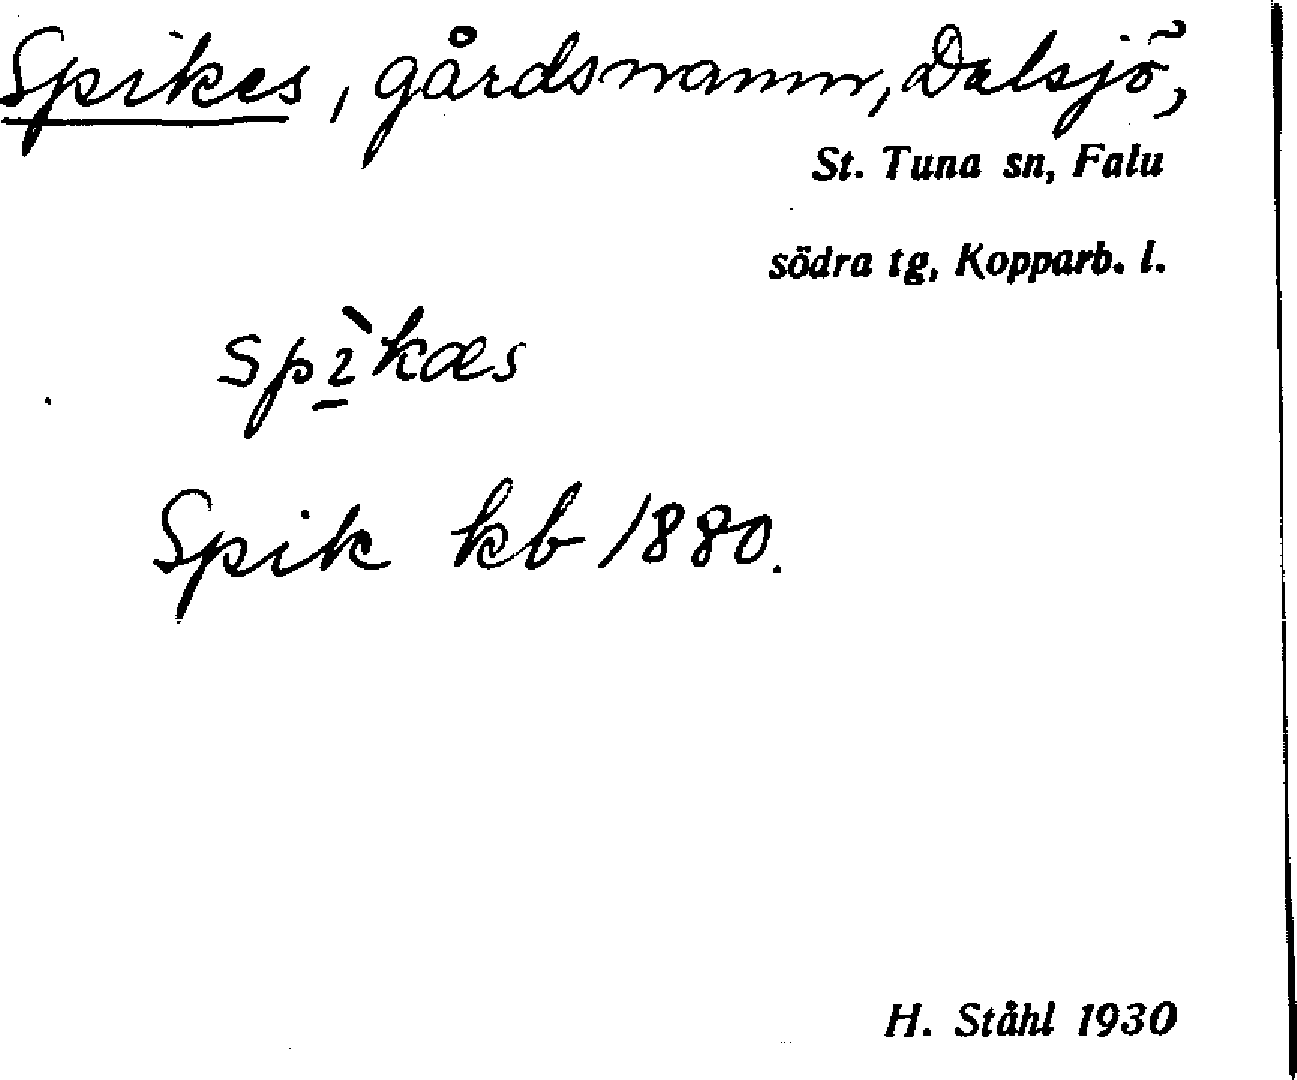 Spikes, gårdsnamn, Dalsjö,
St. Tuna sn, Falu
södra tg, Kopparb. l.
spì̠kæs
Spik kb 1880.
H. Ståhl 1930